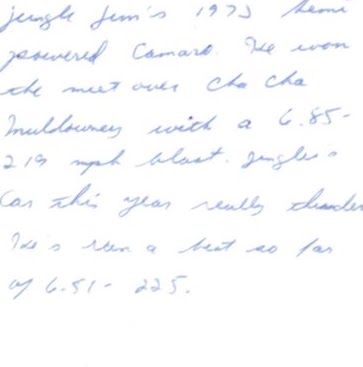 jungle Jim's 1973 Hemi
powered Camaro. He won
the meet over Cha Cha
Muldowney with a 6.85-
219 mph blast. Jungle's
Car this year really thunders
He's run a best so far
of 6.51- 225.